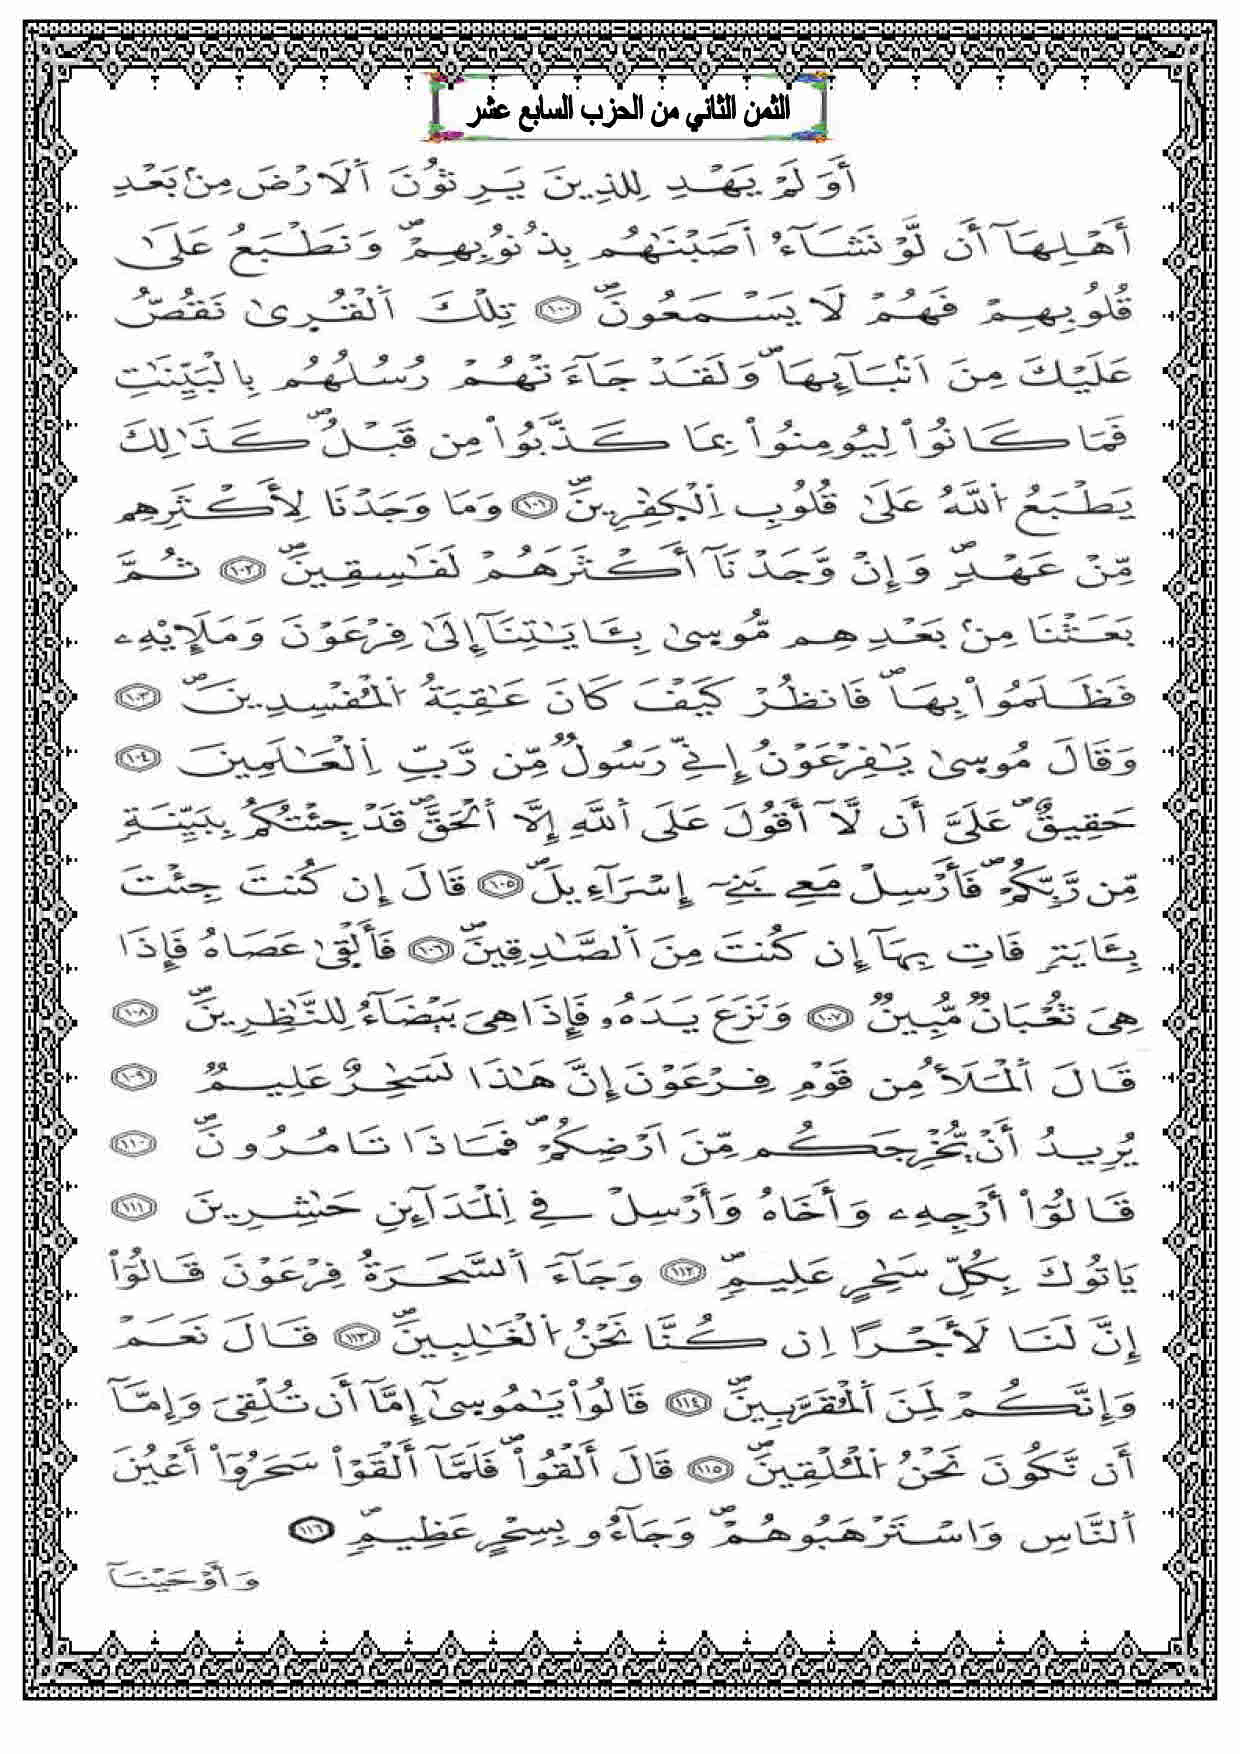 الثمن الثاني من الحزب السابع عشر
أَوَلَمْ يَهْدِ لِلذِينَ يَرِثُونَ اَلَارْضَ مِنۢ بَعْدِ
أَهْلِهَآ أَن لَّوْ نَشَآءُ اَصَبْنَٰهُم بِذُنُوبِهِمْۖ وَنَطْبَعُ عَلَىٰ
قُلُوبِهِمْ فَهُمْ لَا يَسْمَعُونَۖ ١٠٠ تِلْكَ اَلْقُرِىٰ نَقُصُّ
عَلَيْكَ مِنَ اَنۢبَآئِهَاۖ وَلَقَدْ جَآءَتْهُمْ رُسُلُهُم بِالْبَيِّنَٰتِ
فَمَا كَانُواْ لِيُومِنُواْ بِمَا كَذَّبُواْ مِن قَبْلُۖ كَذَٰلِكَ
يَطْبَعُ اُللَّهُ عَلَىٰ قُلُوبِ اِلْكٰفِرِينَۖ ١٠١ وَمَا وَجَدْنَا لِأَكْثَرِهِم
مِّنْ عَهْدٍۖ وَإِنْ وَّجَدْنَآ أَكْثَرَهُمْ لَفَٰسِقِينَۖ ١٠٢ ثُمَّ
بَعَثْنَا مِنۢ بَعْدِهِم مُّوسِىٰ بِـَٔايَٰتِنَآ إِلَىٰ فِرْعَوْنَ وَمَلَإِيْهِۦ
فَظَلَمُواْ بِهَاۖ فَانظُرْ كَيْفَ كَانَ عَٰقِبَةُ اُلْمُفْسِدِينَۖ ١٠٣
وَقَالَ مُوسِىٰ يَٰفِرْعَوْنُ إِنِّے رَسُولٌ مِّن رَّبِّ اِلْعَٰلَمِينَ ١٠٤
حَقِيقٌۖ عَلَيَّ أَن لَّآ أَقُولَ عَلَى اَللَّهِ إِلَّا اَلْحَقَّۖ قَدْ جِئْتُكُم بِبَيِّنَةٍ
مِّن رَّبِّكُمْۖ فَأَرْسِلْ مَعِے بَنِےٓ إِسْرَآءِيلَۖ ١٠٥ قَالَ إِن كُنتَ جِئْتَ
بِـَٔايَةٍ فَاتِ بِهَآ إِن كُنتَ مِنَ اَلصَّٰدِقِينَۖ ١٠٦ فَأَلْقِىٰ عَصَاهُ فَإِذَا
هِىَ ثُعْبَانٌ مُّبِينٌ ١٠٧ وَنَزَعَ يَدَهُۥ فَإِذَا هِىَ بَيْضَآءُ لِلنَّٰظِرِينَۖ ١٠٨
قَالَ اَلْمَلَأُ مِن قَوْمِ فِرْعَوْنَ إِنَّ هَٰذَا لَسَٰحِرٌ عَلِيمٌ ١٠٩
يُرِيدُ أَنْ يُّخْرِجَكُم مِّنَ اَرْضِكُمْۖ فَمَاذَا تَامُرُونَۖ ١١٠
قَالُوٓاْ أَرْجِهِۦ وَأَخَاهُ وَأَرْسِلْ فِے اِلْمَدَآئِنِ حَٰشِرِينَ ١١١
يَاتُوكَ بِكُلِّ سَٰحِرٍ عَلِيمٍۖ ١١٢ وَجَآءَ اَلسَّحَرَةُ فِرْعَوْنَ قَالُوٓاْ
إِنَّ لَنَا لَأَجْرًا اِن كُنَّا نَحْنُ اُلْغَٰلِبِينَۖ ١١٣ قَالَ نَعَمْ
وَإِنَّكُمْ لَمِنَ اَلْمُقَرَّبِينَۖ ١١٤ قَالُواْ يَٰمُوسِىٰٓ إِمَّآ أَن تُلْقِىَ وَإِمَّآ
أَن نَّكُونَ نَحْنُ اُلْمُلْقِينَۖ ١١٥ قَالَ أَلْقُواْۖ فَلَمَّآ أَلْقَوْاْ سَحَرُوٓاْ أَعْيُنَ
اَلنَّاسِ وَاسْتَرْهَبُوهُمْۖ وَجَآءُو بِسِحْرٍ عَظِيمٍۖ ١١٦
وَأَوْحَيْنَآ